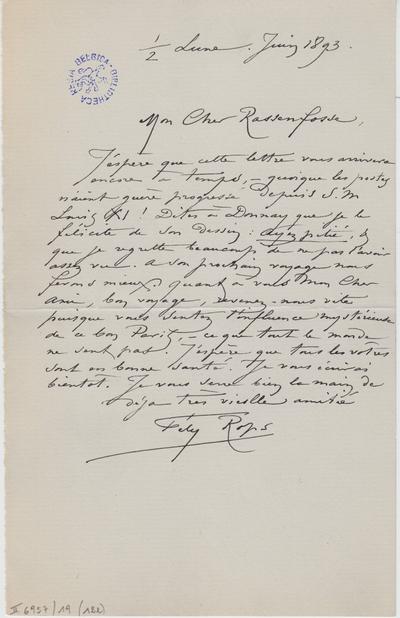 1/2 Lune. Juin 1893.
BIBLIOTHECA REGIA BELGICA
Mon Cher Rassenfosse,
J'espère que cette lettre vous arrivera
encore à temps, – quoique les postes
n'aient guère progressé depuis S. M
Louis XI ! Dites à Donnay que je le
félicite de son dessin : Ayez pitié, &
que je regrette beaucoup de ne pas l'avoir
assez vu. A son prochain voyage nous
ferons mieux. Quant à vous Mon Cher
Ami, bon voyage, revenez-nous vite
puisque vous sentez l'influence mystérieuse
de ce bon Paris, – ce que tout le monde
ne sent pas. J'espère que tous les vôtres
sont en bonne santé. Je vous écrirai
bientôt. Je vous serre bien la main de
déjà très vieille amitié
Fély Rops
II 6957/19 (122)